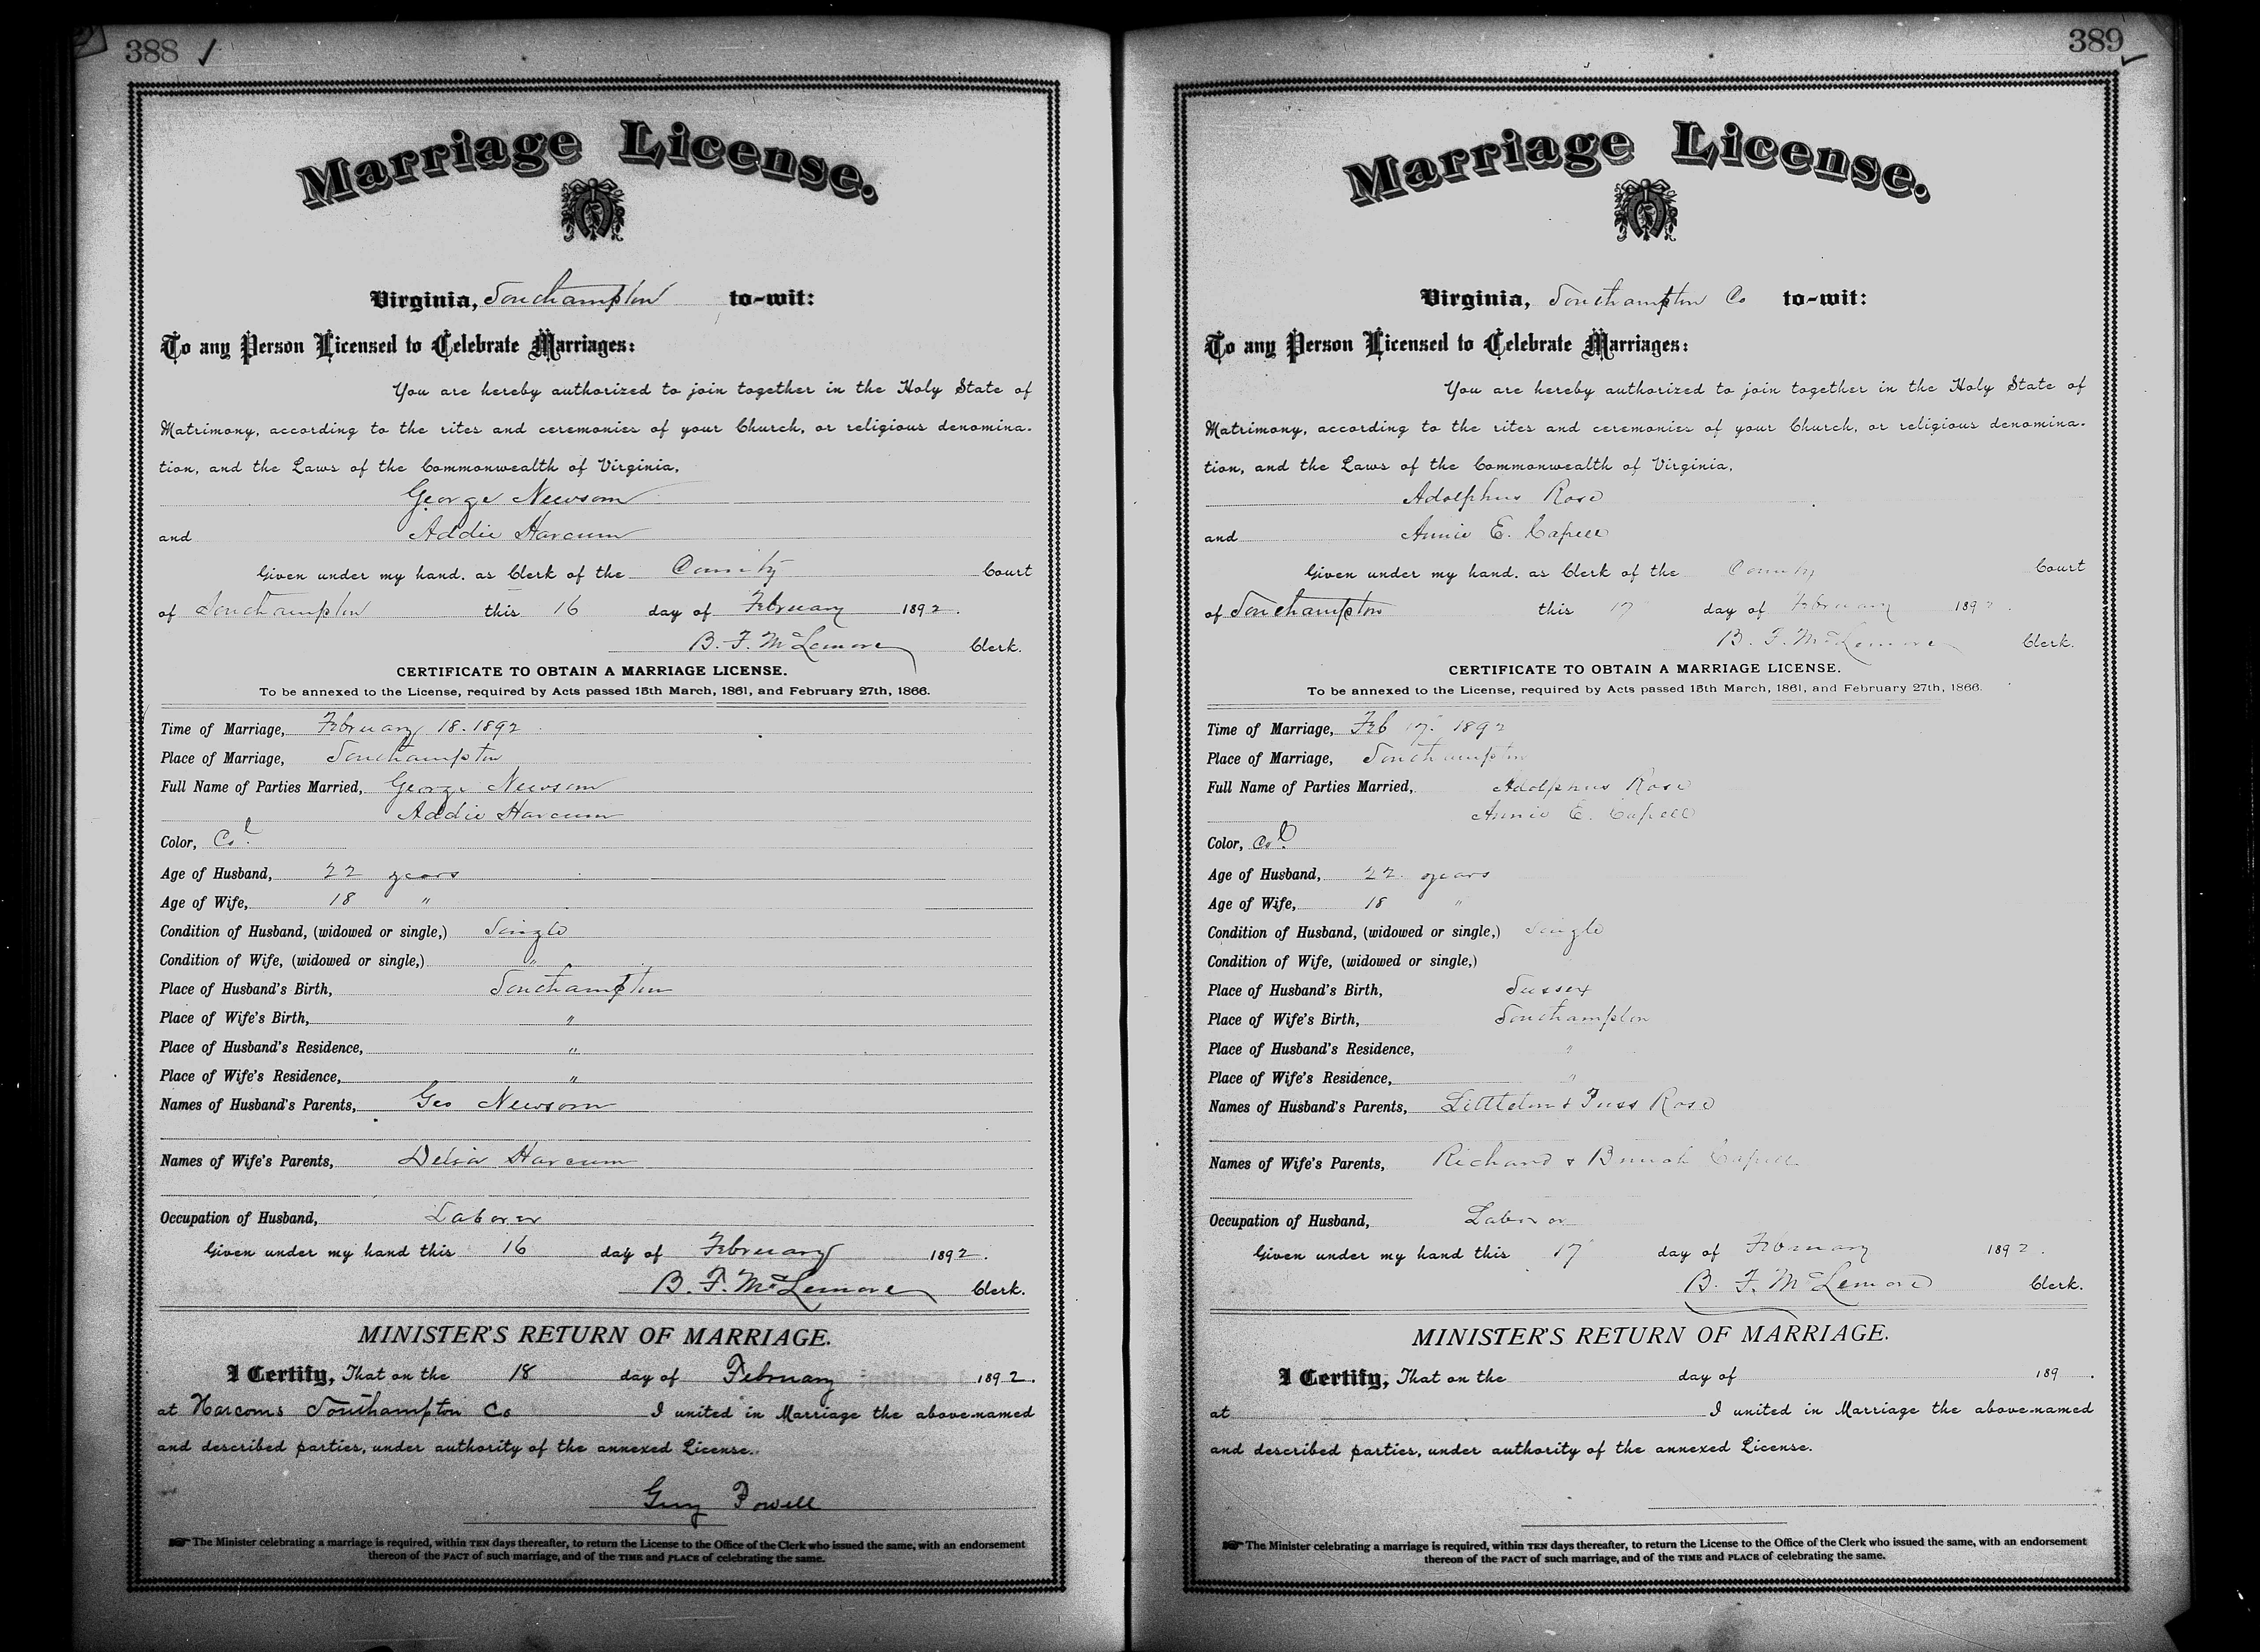 388
Marriage License.
Virginia, Southampton to-wit:
To any Person Licensed to Celebrate Marriages:
You are hereby authorized to join together in the Holy State of
Matrimony, according to the rites and ceremonies of your Church, or religious denomina-
tion, and the Laws of the Commonwealth of Virginia,
George Newsom
and Addie Harcum
Given under my hand, as Clerk of the County Court
of Southampton this 16 day of February 1892.
B. F. McLemore Clerk.
CERTIFICATE TO OBTAIN A MARRIAGE LICENSE.
To be annexed to the License, required by Acts passed 15th March, 1861, and February 27th, 1866.
Time of Marriage, February 18. 1892
Place of Marriage, Southampton
Full Name of Parties Married, George Newsom
Addie Harcum
Color, Col.
Age of Husband, 22 years
Age of Wife, 18 "
Condition of Husband, (widowed or single,) Single
Condition of Wife, (widowed or single,) "
Place of Husband's Birth, Southampton
Place of Wife's Birth, "
Place of Husband's Residence, "
Place of Wife's Residence, "
Names of Husband's Parents, Geo Newsom
Names of Wife's Parents, Delia Harcum
Occupation of Husband, Laborer
Given under my hand this 16 day of February 1892.
B. F. McLemore Clerk.
MINISTER'S RETURN OF MARRIAGE.
I Certify, That on the 18 day of February 1892.
at Harcoms Southampton Co I united in Marriage the above-named
and described parties, under authority of the annexed License.
Guy Powell
The Minister celebrating a marriage is required, within TEN days thereafter, to return the License to the Office of the Clerk who issued the same, with an endorsement
thereon of the FACT of such marriage, and of the TIME and PLACE of celebrating the same.
389
Marriage License.
Virginia, Southampton Co to-wit:
To any Person Licensed to Celebrate Marriages:
You are hereby authorized to join together in the Holy State of
Matrimony, according to the rites and ceremonies of your Church, or religious denomina-
tion, and the Laws of the Commonwealth of Virginia,
Adolphus Rose
and Annie E. Capell
Given under my hand, as Clerk of the County Court
of Southampton this 17 day of February 1892.
B. F. McLemore Clerk.
CERTIFICATE TO OBTAIN A MARRIAGE LICENSE.
To be annexed to the License, required by Acts passed 15th March, 1861, and February 27th, 1866.
Time of Marriage, Feb 17. 1892
Place of Marriage, Southampton
Full Name of Parties Married, Adolphus Rose
Annie E. Capell
Color, Col.
Age of Husband, 22 years
Age of Wife, 18 "
Condition of Husband, (widowed or single,) Single
Condition of Wife, (widowed or single,)
Place of Husband's Birth, Sussex
Place of Wife's Birth, Southampton
Place of Husband's Residence, "
Place of Wife's Residence, "
Names of Husband's Parents, Littleton & Rose
Names of Wife's Parents, Richard & Capell
Occupation of Husband, Laborer
Given under my hand this 17 day of February 1892.
B. F. McLemore Clerk.
MINISTER'S RETURN OF MARRIAGE.
I Certify, That on the day of 189 .
at I united in Marriage the above-named
and described parties, under authority of the annexed License.
The Minister celebrating a marriage is required, within TEN days thereafter, to return the License to the Office of the Clerk who issued the same, with an endorsement
thereon of the FACT of such marriage, and of the TIME and PLACE of celebrating the same.